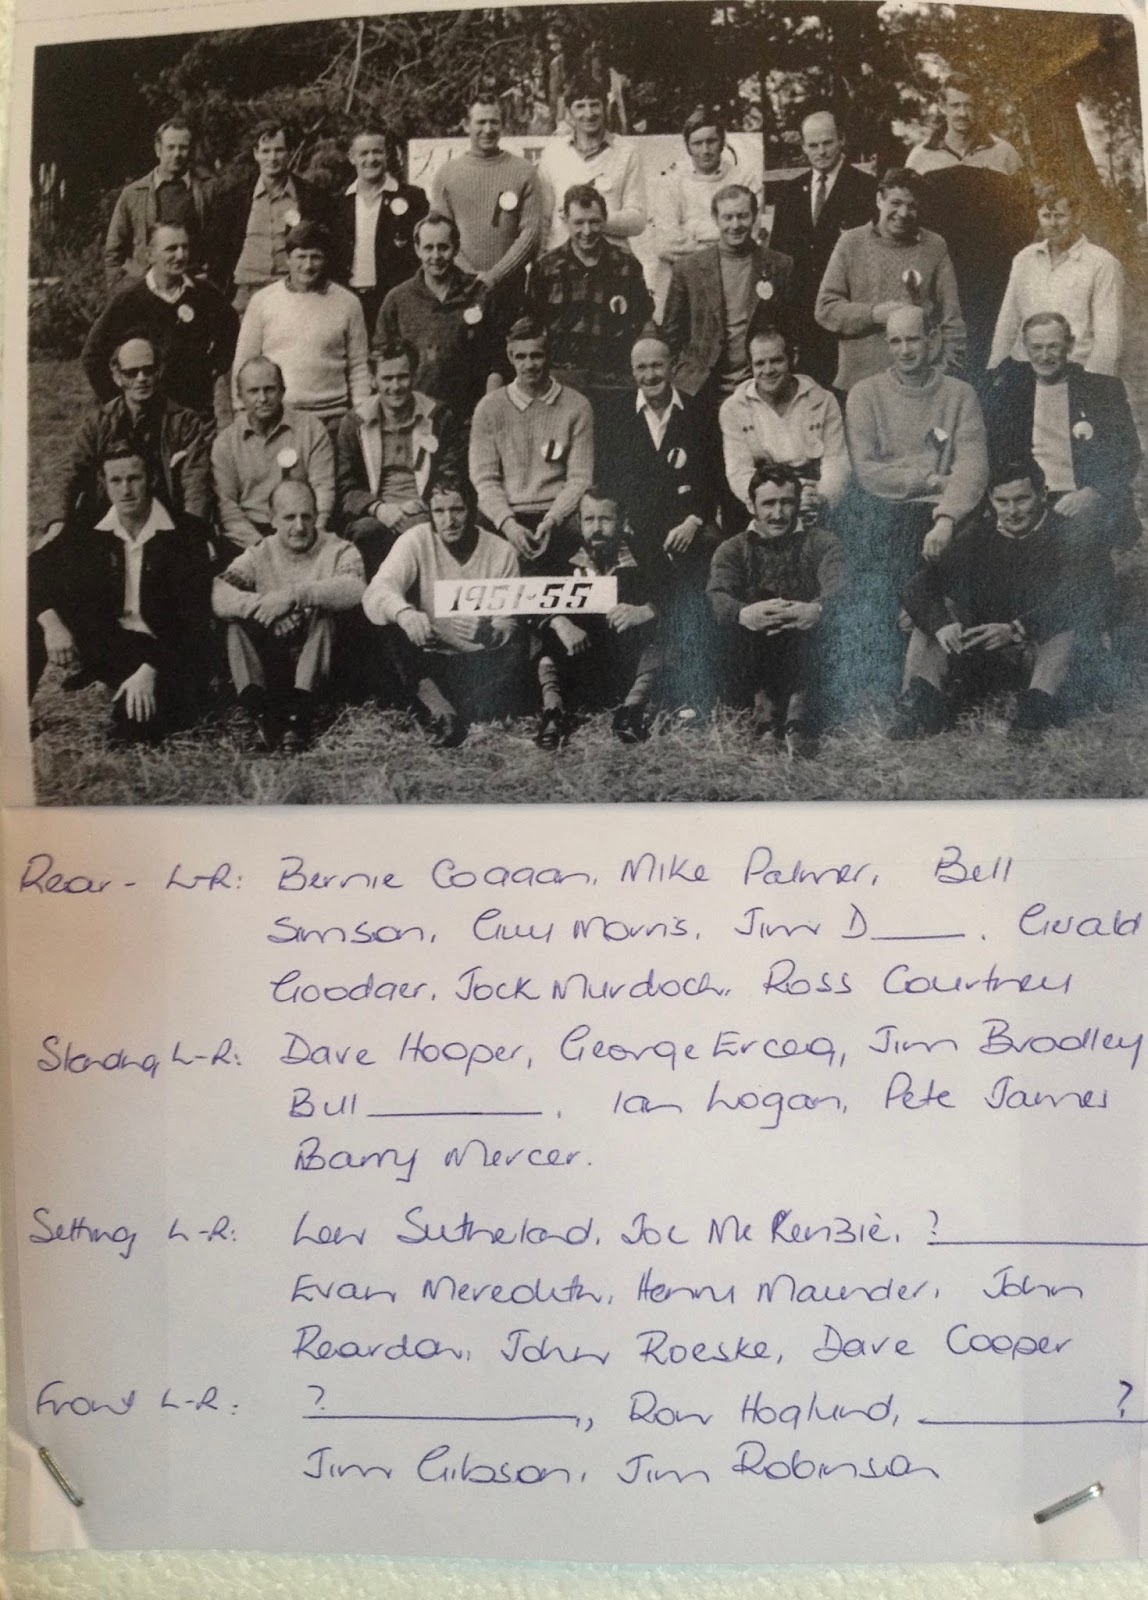 1951-55
Rear - L-R: Bernie Coggan, Mike Palmer, Bell
Simson, Guy Morris, Jim D____. Gerald
Goodger, Jock Murdoch, Ross Courtney
Standing L-R: Dave Hooper, George Erceg, Jim Bradley
Bill ________, Ian Logan, Pete James
Barry Mercer.
Setting L-R: Lew Sutherland, Joe McKenzie, ?________
Evan Meredith, Henry Maunder, John
Reardon, John Roeske, Dave Cooper
Front L-R: ?________, Ron Hoglund, ________?
Jim Gibson, Jim Robinson